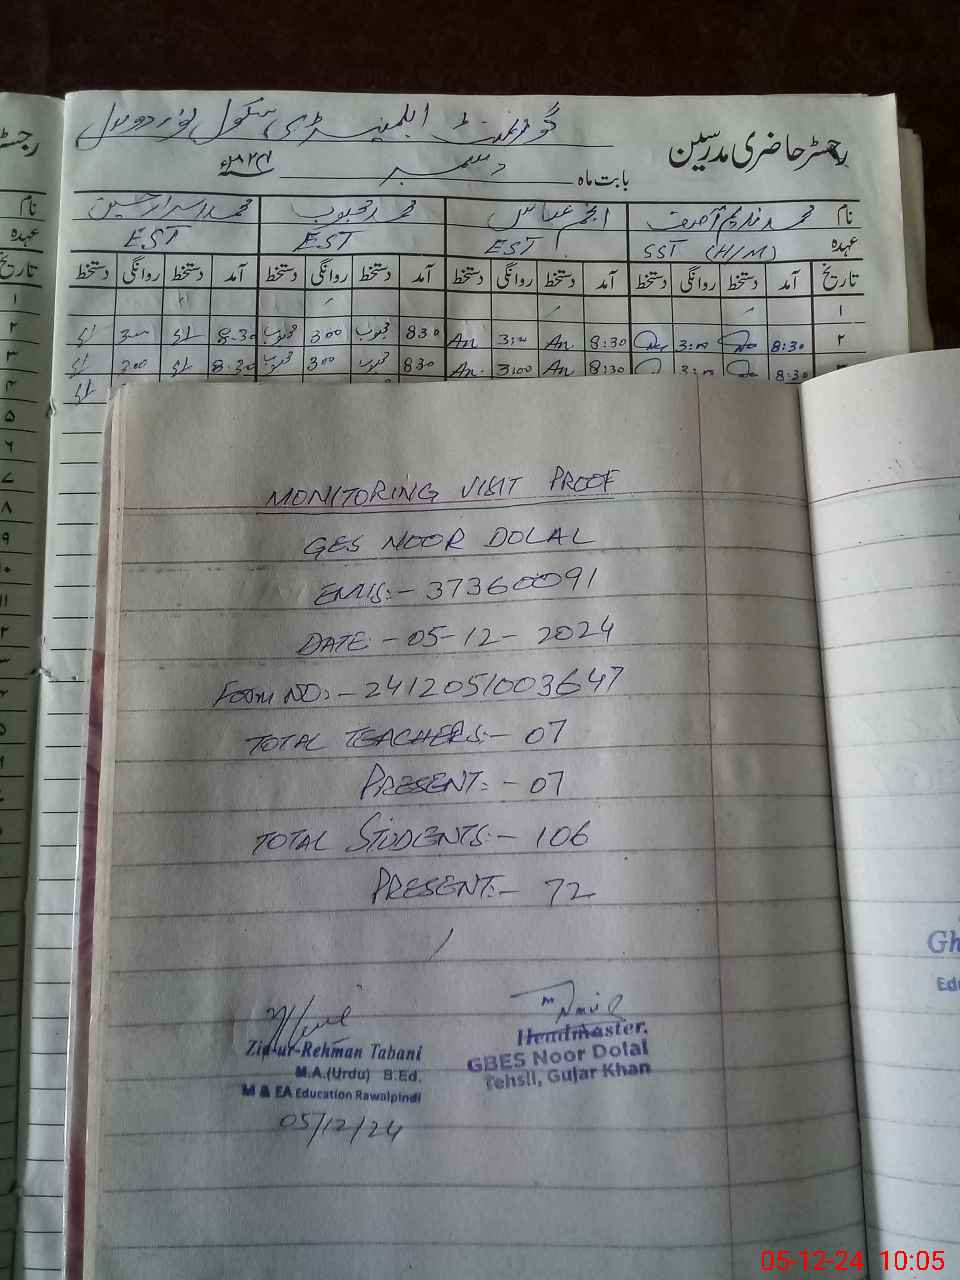 گورنمنٹ ایلیمنٹری سکول نور دولال
رجسٹر حاضری مدرسین
بابت ماہ دسمبر ۲۰۲۴ء
نام محمد ندیم آصف انجم عباس محمد محبوب محمد اسرار حسین
عہدہ SST (H/M) EST EST EST
تاریخ آمد دستخط روانگی دستخط آمد دستخط روانگی دستخط آمد دستخط روانگی دستخط آمد دستخط روانگی دستخط
۱
۲ 8:30 3:00 8:30 An 3:00 An 830 محبوب 300 محبوب 8.30 300
8:30 3:00 8:30 An 3:00 An 830 محبوب 300 محبوب 8.30 300
MONITORING VISIT PROOF
GES NOOR DOLAL
EMIS:- 37360091
DATE:- 05-12-2024
Form NO:- 2412051003647
TOTAL TEACHERS:- 07
PRESENT:- 07
TOTAL STUDENTS:- 106
PRESENT:- 72
Zia-ur-Rehman Tabani
M.A.(Urdu) B.Ed.
M & EA Education Rawalpindi
05/12/24
Headmaster.
GBES Noor Dolal
Tehsil, Gujar Khan
05-12-24 10:05